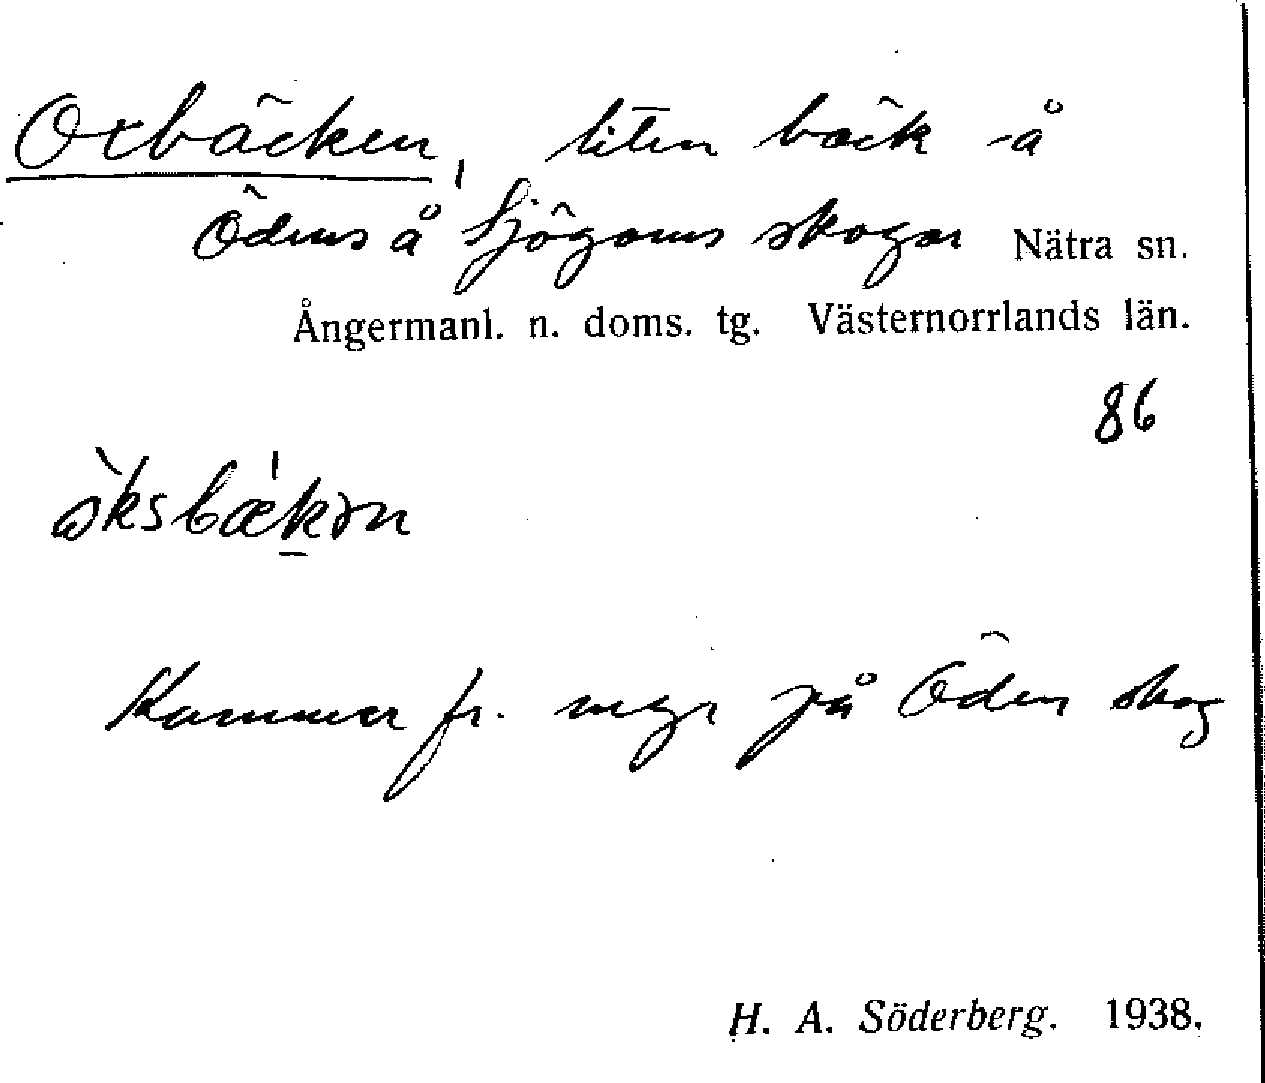 Oxbäcken, liten bäck å
Ödens å Sjögoms skogar Nätra sn.
Ångermanl. n. doms. tg. Västernorrlands län.
86
òksbǽkən
Kommer fr. myr på Öden skog
H. A. Söderberg. 1938.